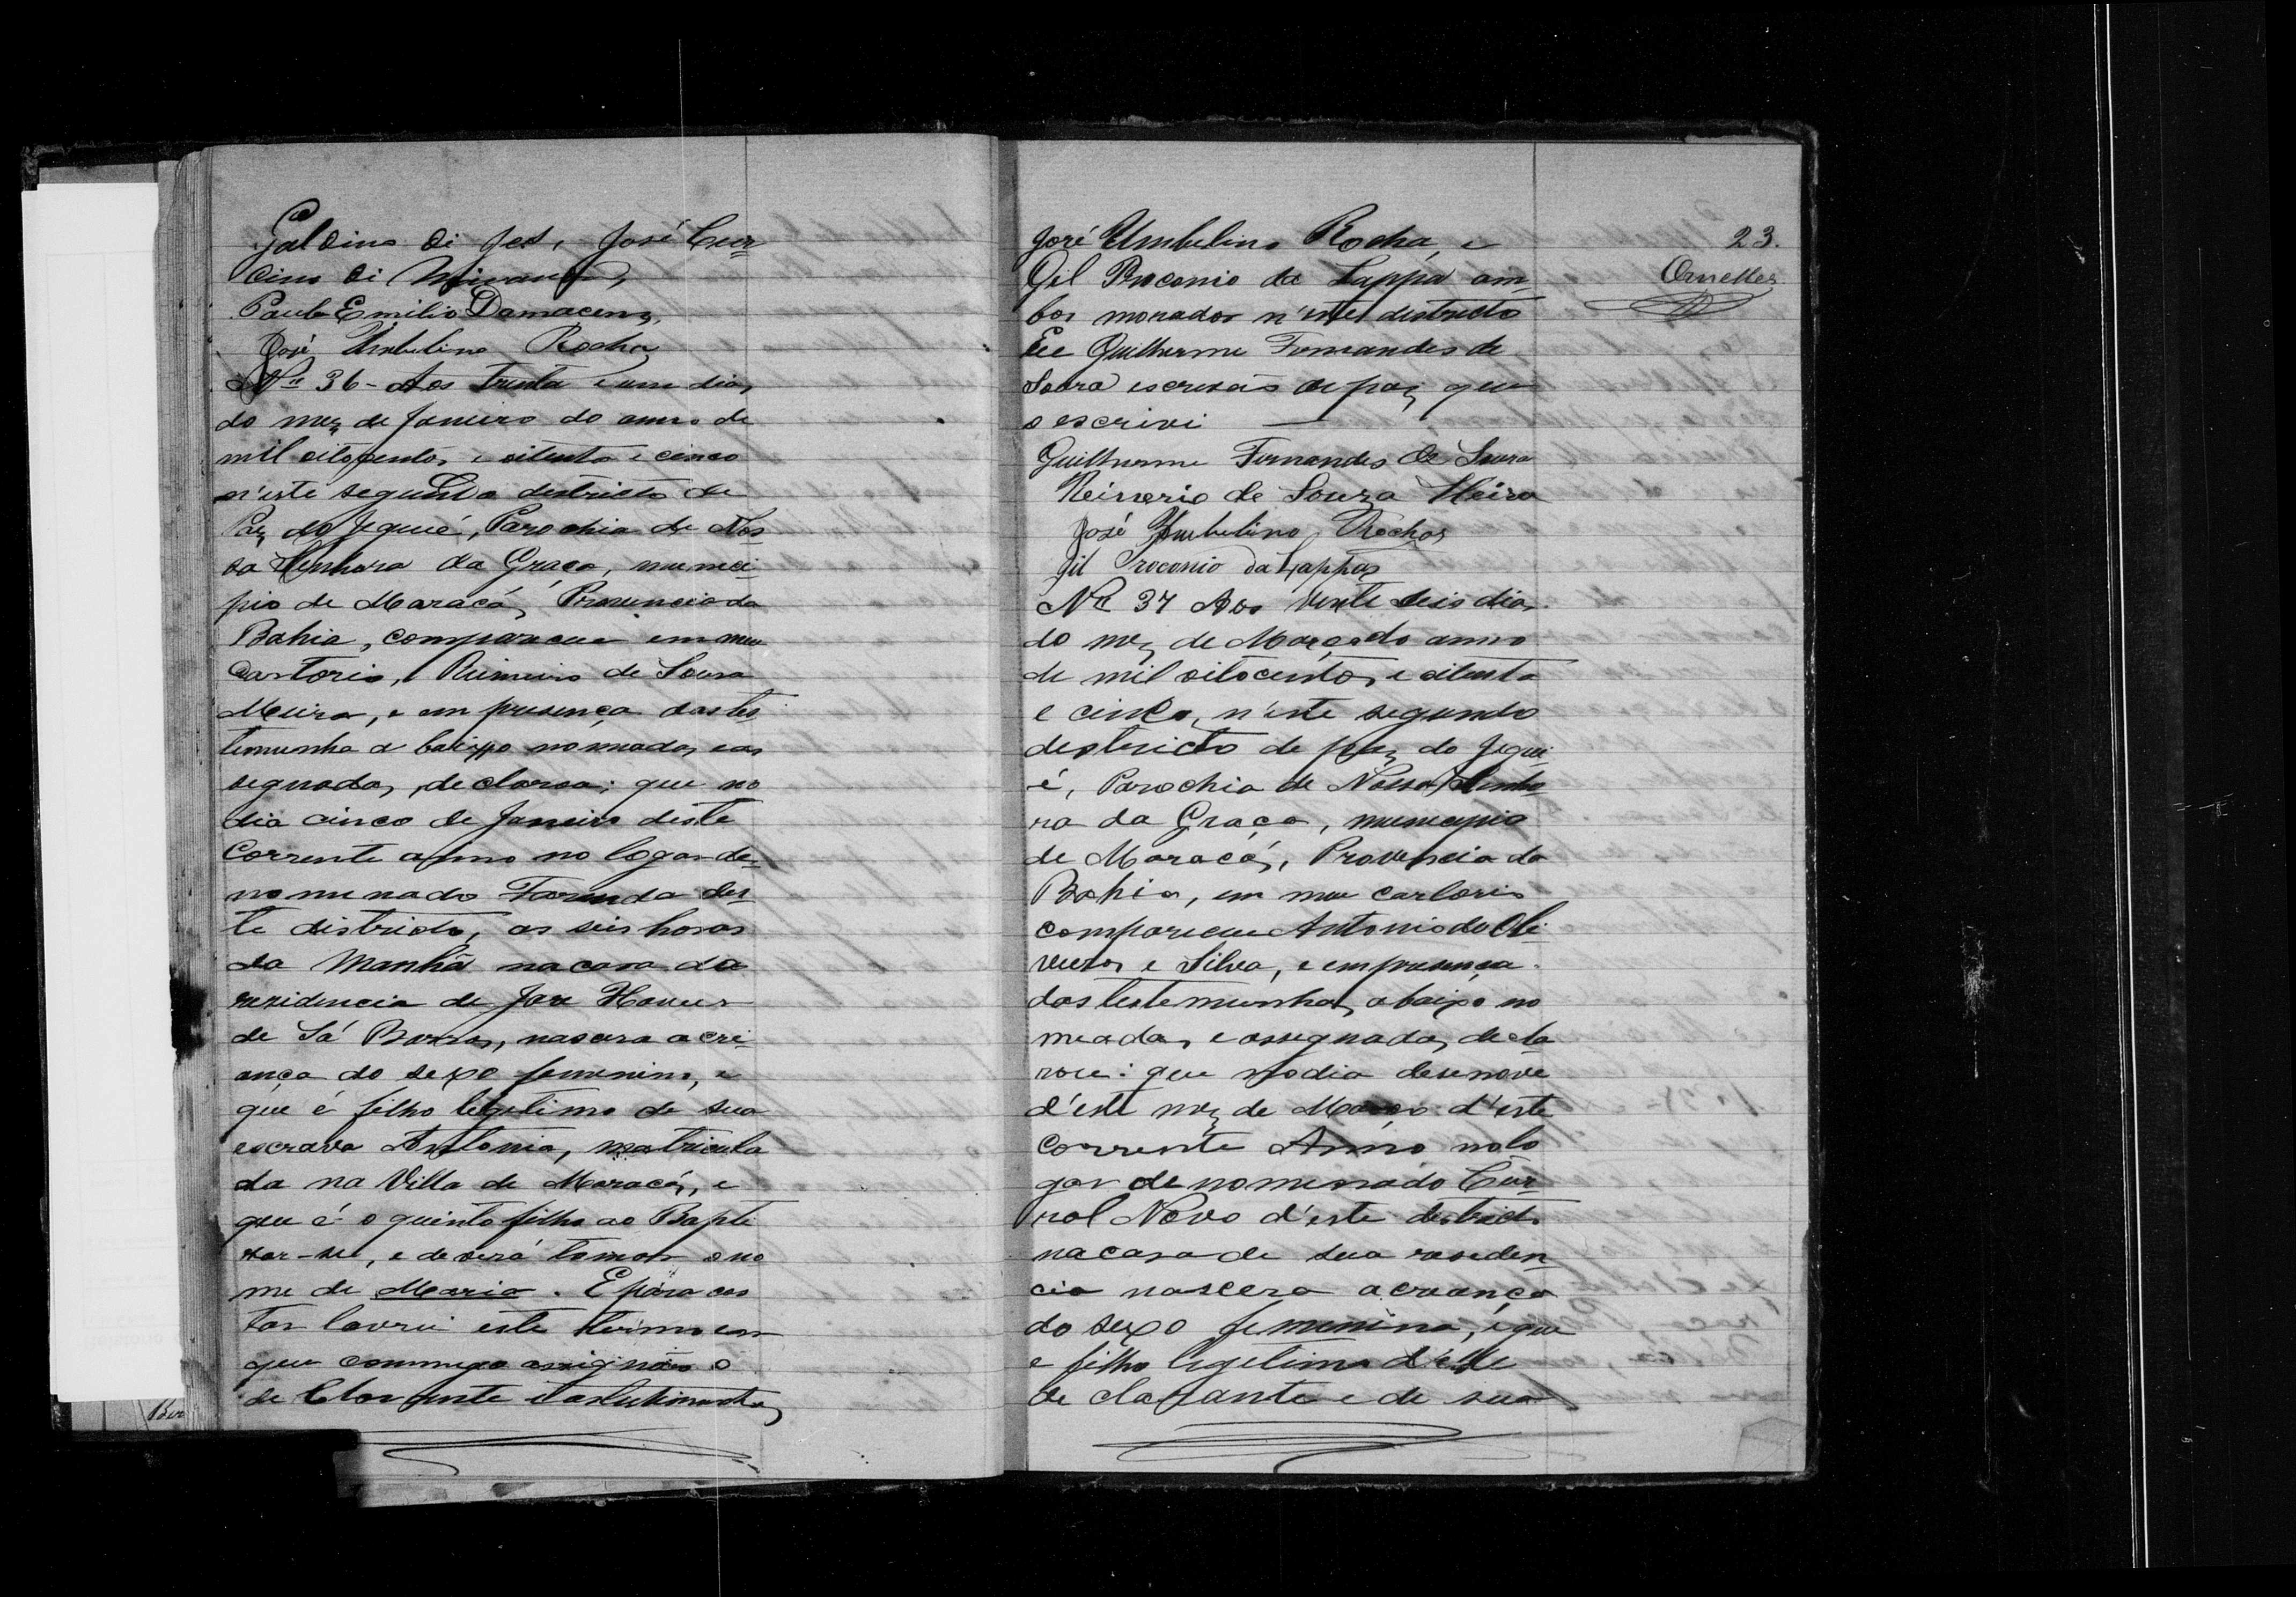 Galdino di Jes, José Cur
cino di Miranda,
Paulo Emilio Damaceno,
José Umbelino Rocha
Nº 36 - Aos trinta e um dias
do mez de Janeiro do anno de
mil oitocentos e oitenta e cinco
n'este segundo destricto de
Paz do Jequié, Parochia de Nos
sa Senhora da Graça, munici
pio de Maracás, Provincia da
Bahia, compareceu em meu
Cartorio, de Sousa
Meira, e em presença das tes
temunha a baixo nomeadas e as
segnadas, declarou: que no
dia cinco de Janeiro deste
Corrente anno no logar de
nomenado Fazenda des
te districto, as seis horas
da Manhã na casa da
residencia de José
de Sá Barros, nascera a cri
ança do sexo femenino, e
que é filho legetimo de sua
escrava Antonia, matricula
da na Villa de Maracás, e
que é o quinto filho ao Bapti
sar-se, e deverá tomar o no
me de Maria. E para cos
tar lavrei este termo em
que commigo assignão o
de Clarante e as testimunhas
José Umbelino Rocha, e
Gil Proconio da Lappa am
bos morador n'este destricto
Eu Guilherme Fernandes de
Soura escrivão de paz que
o escrivi
Guilherme Fernandes de Soura
Reinerio de Souza Meira
José Umbelino Rocha
Gil Proconio da Lappa
Nº 37 Aos Vinte seis dias
do mez de Março do anno
de mil oitocentos e oitenta
e cinco, n'este segundo
destricto de paz do Jequi
é, Parochia de Nossa Senho
ra da Graça, municipio
de Maracás, Provencia da
Bahia, em meu cartorio
compareceu Antonio de Oli
veira e Silva, e em presença
das testemunhas abaixo no
meadas e assegnadas, decla
rou: que no dia desenove
d'este mez de Março d'este
Corrente Anno no lo
gar denomenado Cur
ral Novo d'este destricto
na casa de sua residen
cia nascera a creança
do sexo femenina, e que
e filha legetima d'elle
de clarante e de sua
23.
Ornellas